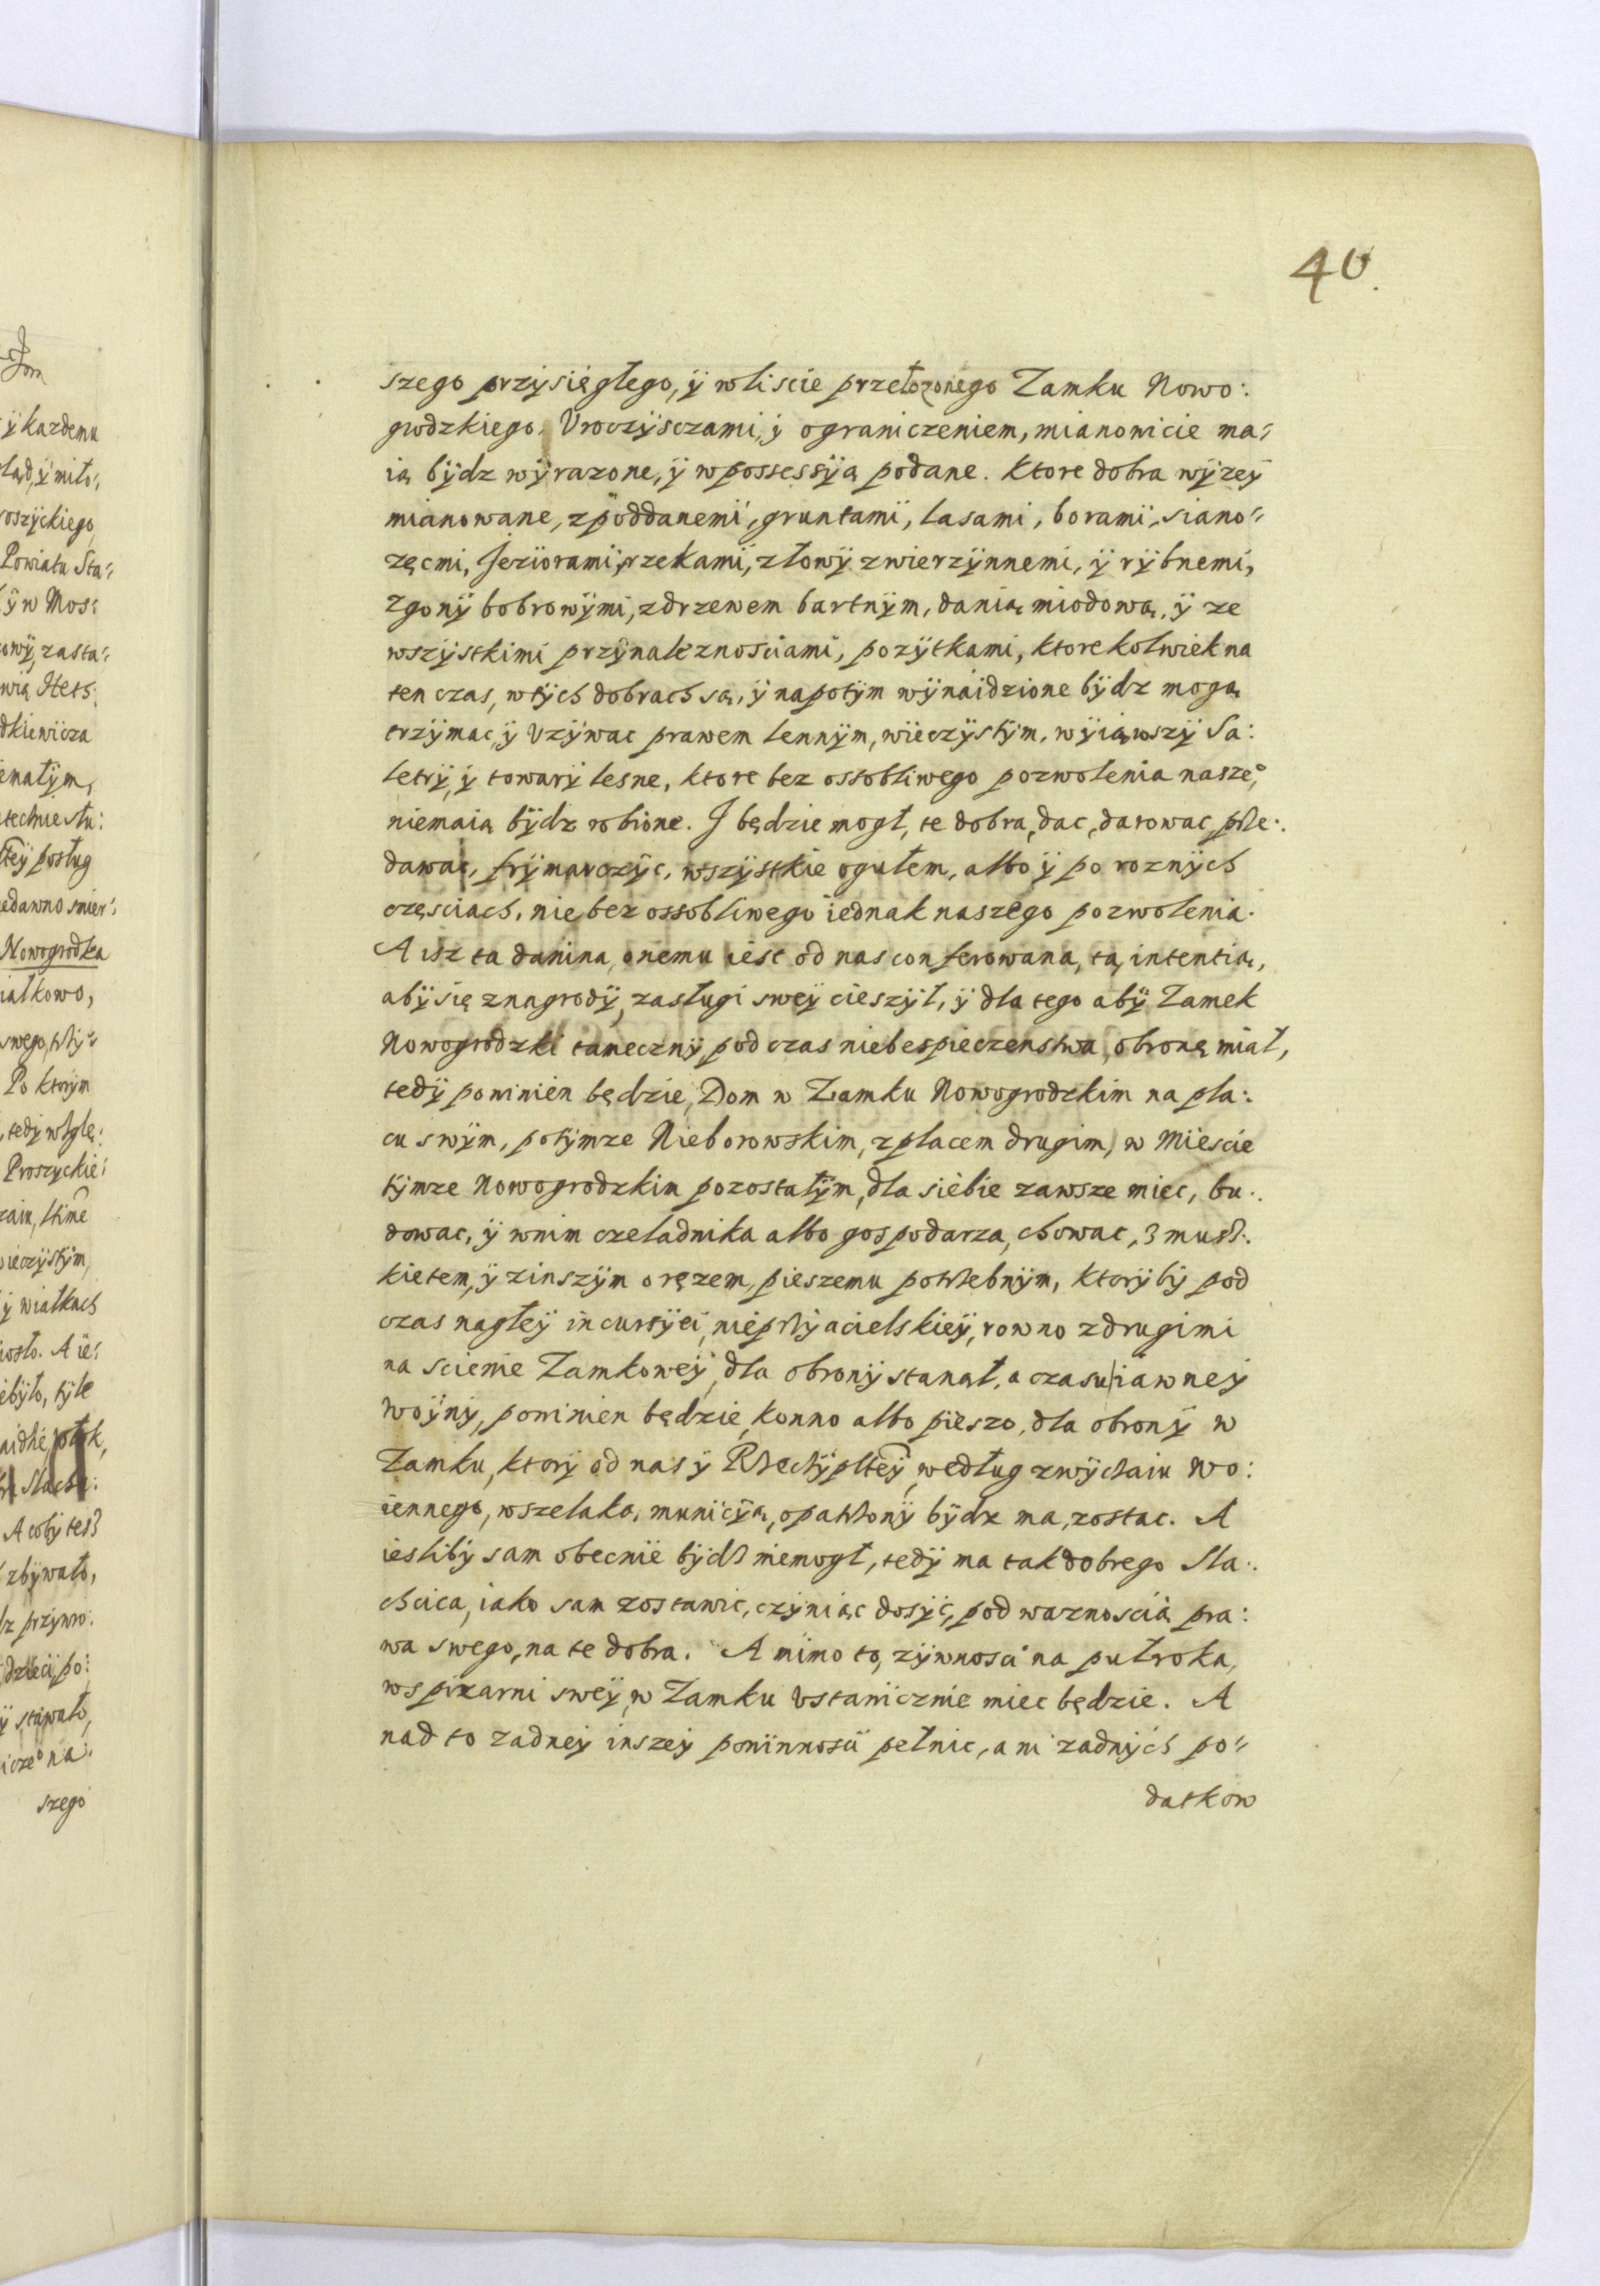 40.
szego przÿsięgłego, ÿ w liscie przełozonego Zamku Nowo:
grodzkiego. Vroczÿsczami, ÿ ograniczeniem, mianowicie ma:
ią bÿdz wÿrazone, ÿ w possessÿą podane. Ktore dobra wÿzeÿ
mianowane, z poddanemi, gruntami, lasami, borami, siano:
zęcmi, Jeziorami, rzekami, z łowÿ zwierzÿnnemi, ÿ rÿbnemi,
z gonÿ bobrowÿmi, z drzewem bartnÿm, danią miodową, ÿ ze
wszÿstkimi przÿnaleznosciami, pozÿtkami, ktorekolwiek na
ten czas, w tÿch dobrach są, ÿ napotÿm wÿnaidzione bÿdz mogą
trzÿmac, ÿ Vzÿwac prawem lennÿm, wieczÿstÿm, wÿiąwszÿ Sa:
letrÿ, ÿ towarÿ lesne, ktore bez ossobliwego pozwolenia nasze°,
niemaią bÿdz robione. J będzie mogł, te dobra, dac, darowac, prze:
dawac, frÿmarczÿc, wszÿstkie ogułem, albo ÿ po roznÿch
częsciach, nie bez ossobliwego iednak naszego pozwolenia.
A isz ta danina, onemu iest od nas conferowana, tą intentią,
abÿ się z nagrodÿ, zasługi sweÿ cieszÿł, ÿ dla tego abÿ Zamek
Nowogrodzki tamecznÿ pod czas niebespieczenstwa, obronę miał,
tedÿ powinien będzie, Dom w Zamku Nowogrodzkim na pla:
cu swÿm, potÿmze Nieborowskim, z placem drugim, w Miescie
tÿmze Nowogrodzkim pozostałÿm, dla siebie zawsze miec, bu:
dowac, ÿ w nim czeladnika albo gospodarza, chowac, z musz:
kietem, ÿ z inszÿm oręzem, pieszemu potrzebnÿm, ktorÿ bÿ pod
czas nagłeÿ incursÿei, nieprzÿacielskieÿ, rowno z drugimi
na scienie Zamkoweÿ, dla obronÿ stanął, a czasu iawneÿ
Woÿnÿ, powinien będzie, konno albo pieszo, dla obronÿ w
Zamku, ktorÿ od nas ÿ Rzeczÿplteÿ, według zwÿczaiu wo:
iennego, wszelaką, municÿą, opatrzonÿ bÿdz ma, zostac. A
iesliby sam obecnie bÿdz niemogł, tedÿ ma tak dobrego Sla:
chcica, iako sam zostawic, czÿniąc dosÿc, pod waznoscią pra:
wa swego, na te dobra. A mimo to, zÿwnosci na puł roka,
w spizarni sweÿ, w Zamku Vstawicznie miec będzie. A
nad to zadneÿ inszeÿ powinnosci pełnic, ani zadnÿch po:
datkow
Nowogrodka
szego